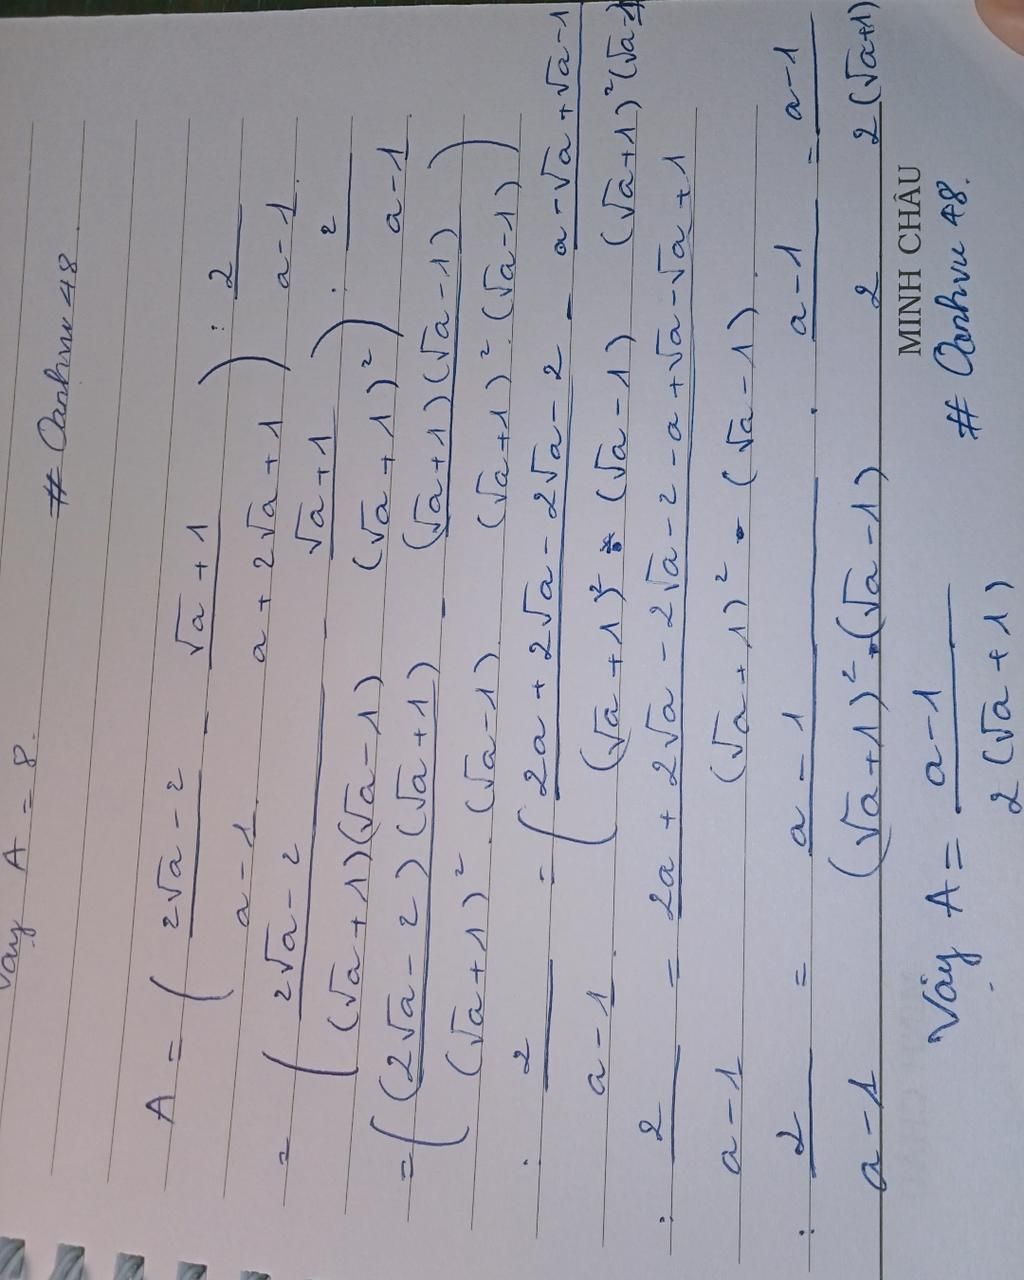 Vậy A = 8.
# Oanhvu 48
A = ( (2√a - 2)/(a - 1) - (√a + 1)/(a + 2√a + 1) ) : 2/(a - 1)
= ( (2√a - 2)/((√a + 1)(√a - 1)) - (√a + 1)/((√a + 1)²) ) : 2/(a - 1)
= ( ((2√a - 2)(√a + 1))/((√a + 1)² . (√a - 1)) - ((√a + 1)(√a - 1))/((√a + 1)² . (√a - 1)) )
: 2/(a - 1) = ( (2a + 2√a - 2√a - 2)/((√a + 1)² . (√a - 1)) - (a - √a + √a - 1)/((√a + 1)² (√a - 1))
: 2/(a - 1) = (2a + 2√a - 2√a - 2 - a + √a - √a + 1)/((√a + 1)² . (√a - 1))
: 2/(a - 1) = (a - 1)/((√a + 1)² . (√a - 1)) . (a - 1)/2 = (a - 1)/(2(√a + 1))
MINH CHÂU
Vậy A = (a - 1)/(2(√a + 1))
# Oanhvu 48.